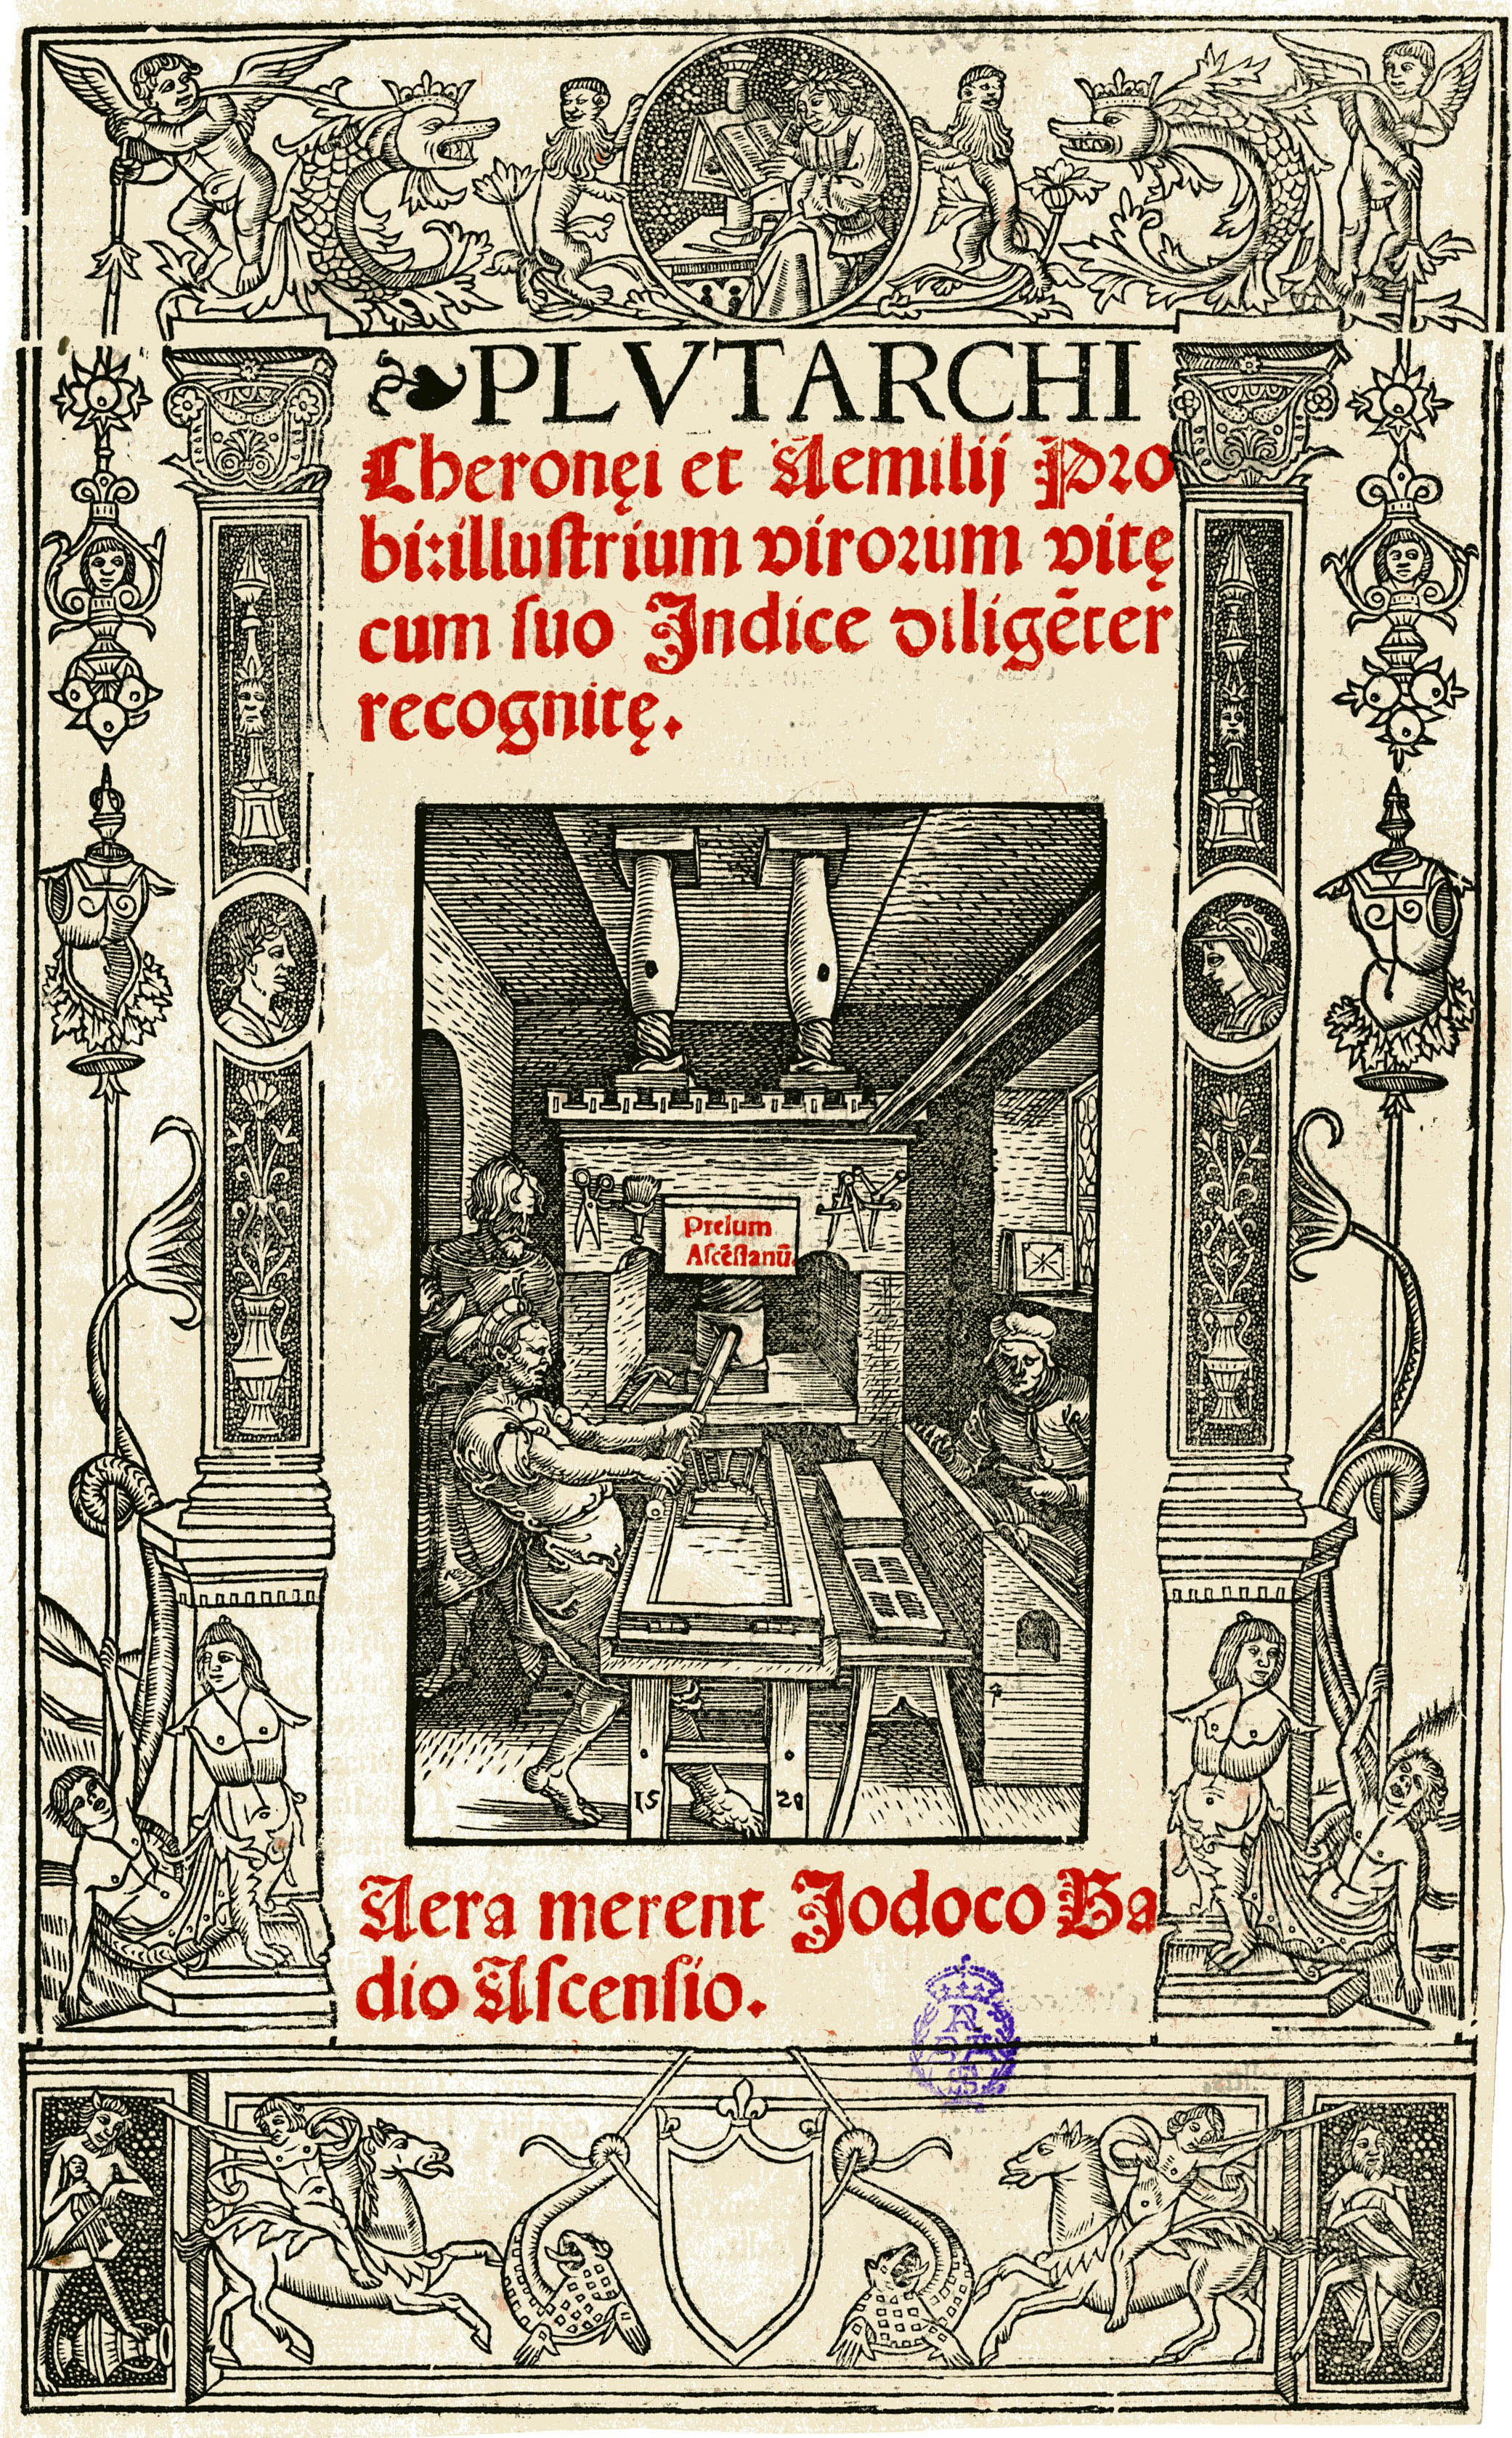 ❧PLVTARCHI
Cheronęi et Aemilij Pro
bi:illuſtrium virorum vitę
cum ſuo Indice diligẽter
recognitę.
Prelum
Aſcẽſianũ.
15 20
Aera merent Jodoco Ba
dio Aſcenſio.